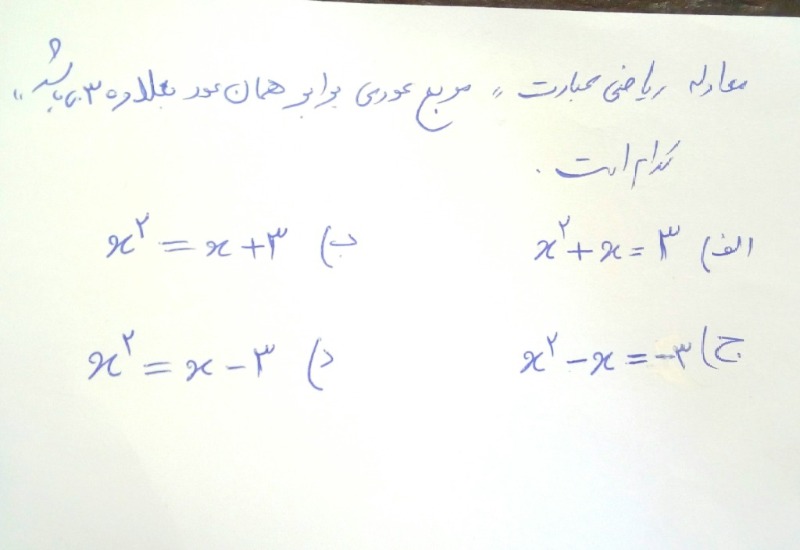 معادله ریاضی عبارت «مربع عددی برابر همان عدد بعلاوه ۳ می باشد»
کدام است.
الف) x²+x=۳    ب) x²=x+۳
ج) x²-x=-۳    د) x²=x-۳